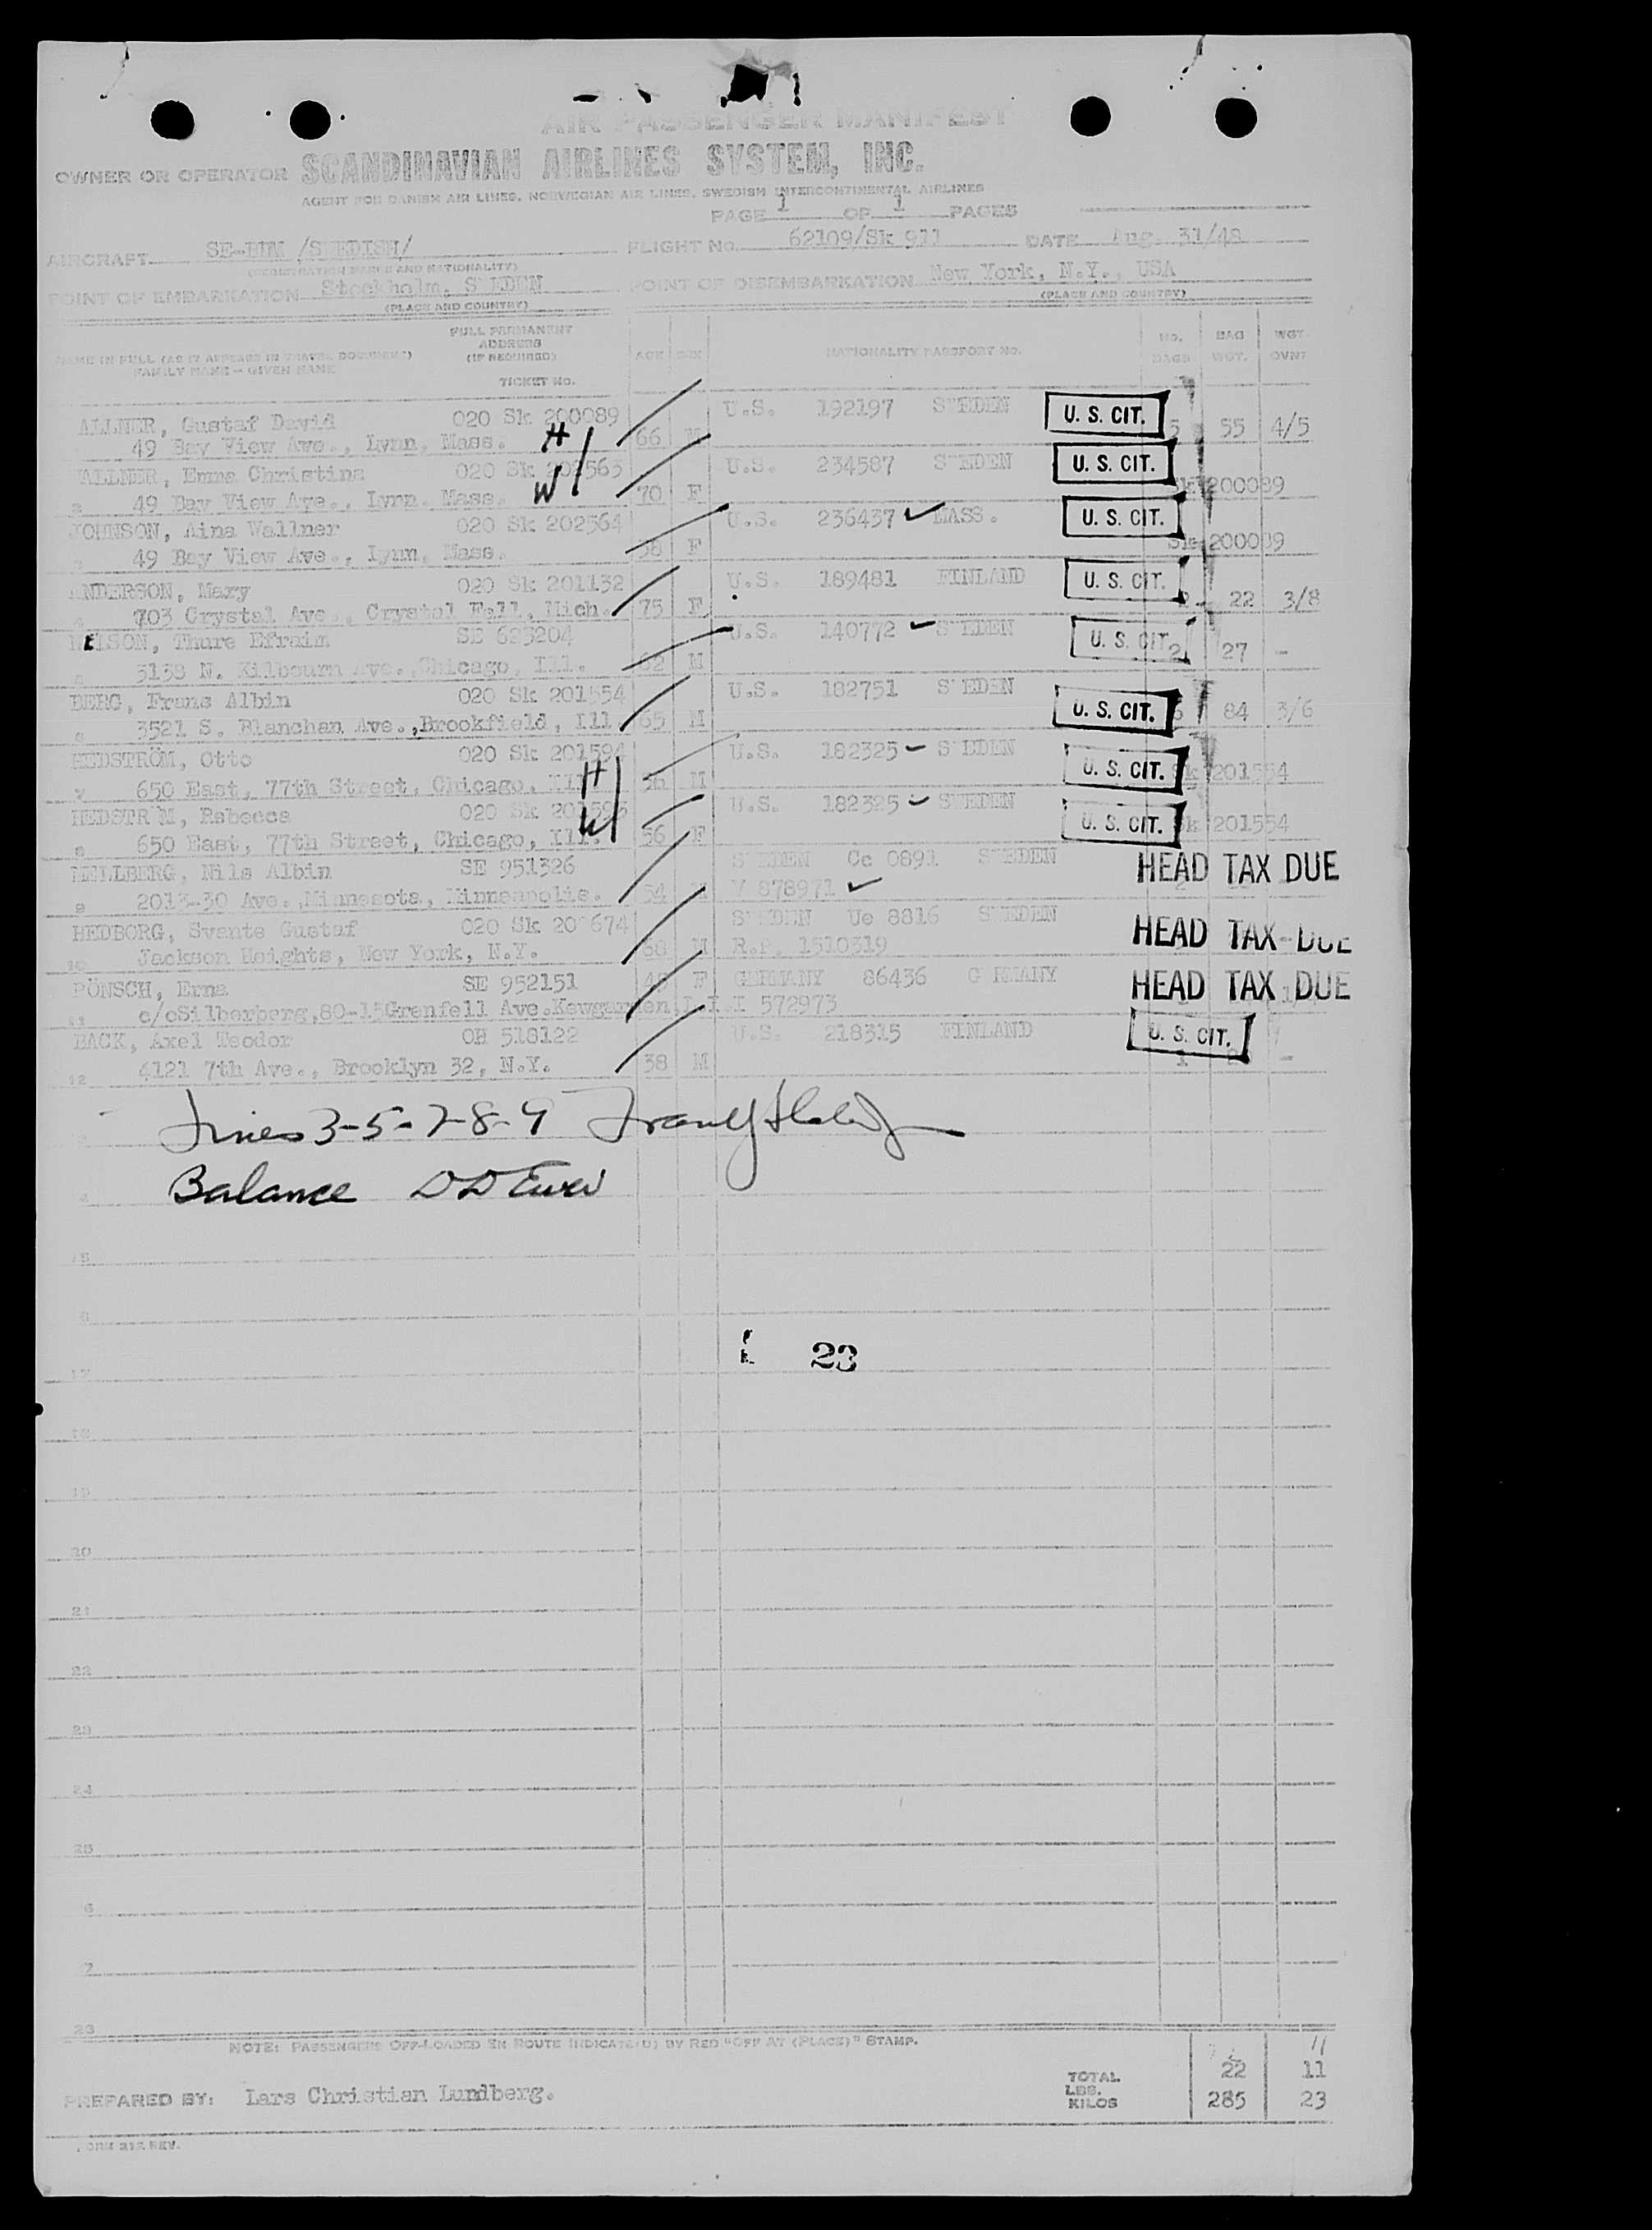 AIR PASSENGER MANIFEST
OWNER OR OPERATOR SCANDINAVIAN AIRLINES SYSTEM, INC.
AGENT FOR DANISH AIR LINES, NORWEGIAN AIR LINES, SWEDISH INTERCONTINENTAL AIRLINES
PAGE 1 OF 1 PAGES
AIRCRAFT /SWEDISH/ FLIGHT No. 62109/Sk 911 DATE Aug. 31/48
(REGISTRATION MARKS AND NATIONALITY)
POINT OF EMBARKATION Stockholm, SWEDEN POINT OF DISEMBARKATION New York, N.Y., USA
(PLACE AND COUNTRY) (PLACE AND COUNTRY)
NAME IN FULL (AS IT APPEARS IN TRAVEL DOCUMENT) FAMILY NAME - GIVEN NAME
FULL PERMANENT ADDRESS (IF REQUIRED) TICKET No. AGE SEX NATIONALITY PASSPORT No. NO. BAGS BAG WGT. WGT. OVNT
ALLNER, Gustaf David 020 Sk 200089 U.S. 192197 SWEDEN U. S. CIT.
49 Bay View Ave., Lynn, Mass. H 66 M 5 55 4/5
ALLNER, Emma Christina 020 Sk U.S. 234587 SWEDEN U. S. CIT.
2 49 Bay View Ave., Lynn, Mass. W 70 F Sk 200089
JOHNSON, Aina Wallner 020 Sk 202564 U.S. 236437 MASS. U. S. CIT.
3 49 Bay View Ave., Lynn, Mass. F Sk 200089
ANDERSON, Mary 020 Sk 201132 U.S. 189481 FINLAND U. S. CIT.
4 703 Crystal Ave., Crystal Fall, Mich. 75 F 2 22 3/8
NELSON, Thure Efraim SE 625204 U.S. 140772 SWEDEN U. S. CIT.
5 3138 N. Kilbourn Ave., Chicago, Ill. 62 M 2 27 -
BERG, Frans Albin 020 Sk 201554 U.S. 182751 SWEDEN U. S. CIT.
6 3521 S. Blanchan Ave., Brookfield, Ill. 65 M 6 84 3/6
HEDSTRÖM, Otto 020 Sk 201594 U.S. 182325 SWEDEN U. S. CIT.
7 650 East, 77th Street, Chicago, Ill. H 56 M Sk 201554
HEDSTRÖM, Rebecca 020 Sk 201595 U.S. 182325 SWEDEN U. S. CIT.
8 650 East, 77th Street, Chicago, Ill. W 56 F Sk 201554
MELLBERG, Nils Albin SE 951326 SWEDEN Cc 0891 SWEDEN HEAD TAX DUE
9 2013-30 Ave., Minnesota, Minneapolis. 54 M V 878971
HEDBORG, Svante Gustaf 020 Sk 674 SWEDEN Ue 8816 SWEDEN HEAD TAX DUE
10 Jackson Heights, New York, N.Y. M R.P. 1510319
PÖNSCH, Erna SE 952151 F GERMANY 86436 GERMANY HEAD TAX DUE
11 c/o Silberberg, 80-15 Grenfell Ave. Kewgarden L.I. I 572973
BACK, Axel Teodor OH 518122 U.S. 218315 FINLAND U. S. CIT.
12 4121 7th Ave., Brooklyn 32, N.Y. 38 M 1 -
Lines 3-5-7-8-9
Balance
15
23
17
19
20
21
22
23
24
25
6
7
28
NOTE: PASSENGERS OFF-LOADED EN ROUTE INDICATE(D) BY RED "OFF AT (PLACE)" STAMP.
11
TOTAL 22 11
LBS.
KILOS 285 23
PREPARED BY: Lars Christian Lundberg.
FORM 212 REV.